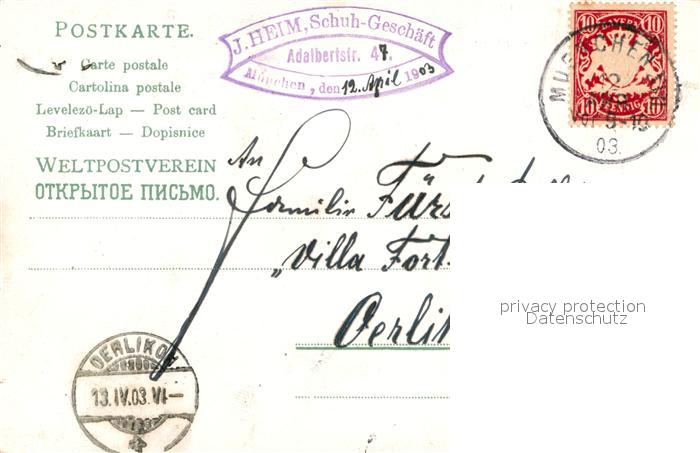 POSTKARTE.
Carte postale
Cartolina postale
Levelezö-Lap — Post card
Briefkaart — Dopisnice
WELTPOSTVEREIN
ОТКРЫТОЕ ПИСЬМО.
J. HEIM, Schuh-Geschäft
Adalbertstr. 47.
München, den 12. April 1903
10 BAYERN 10
10 PFENNIG 10
MUENCHEN
12
9-10
03.
An
Familie
"Villa
privacy protection
Datenschutz
OERLIKON
13.IV.03.VI—